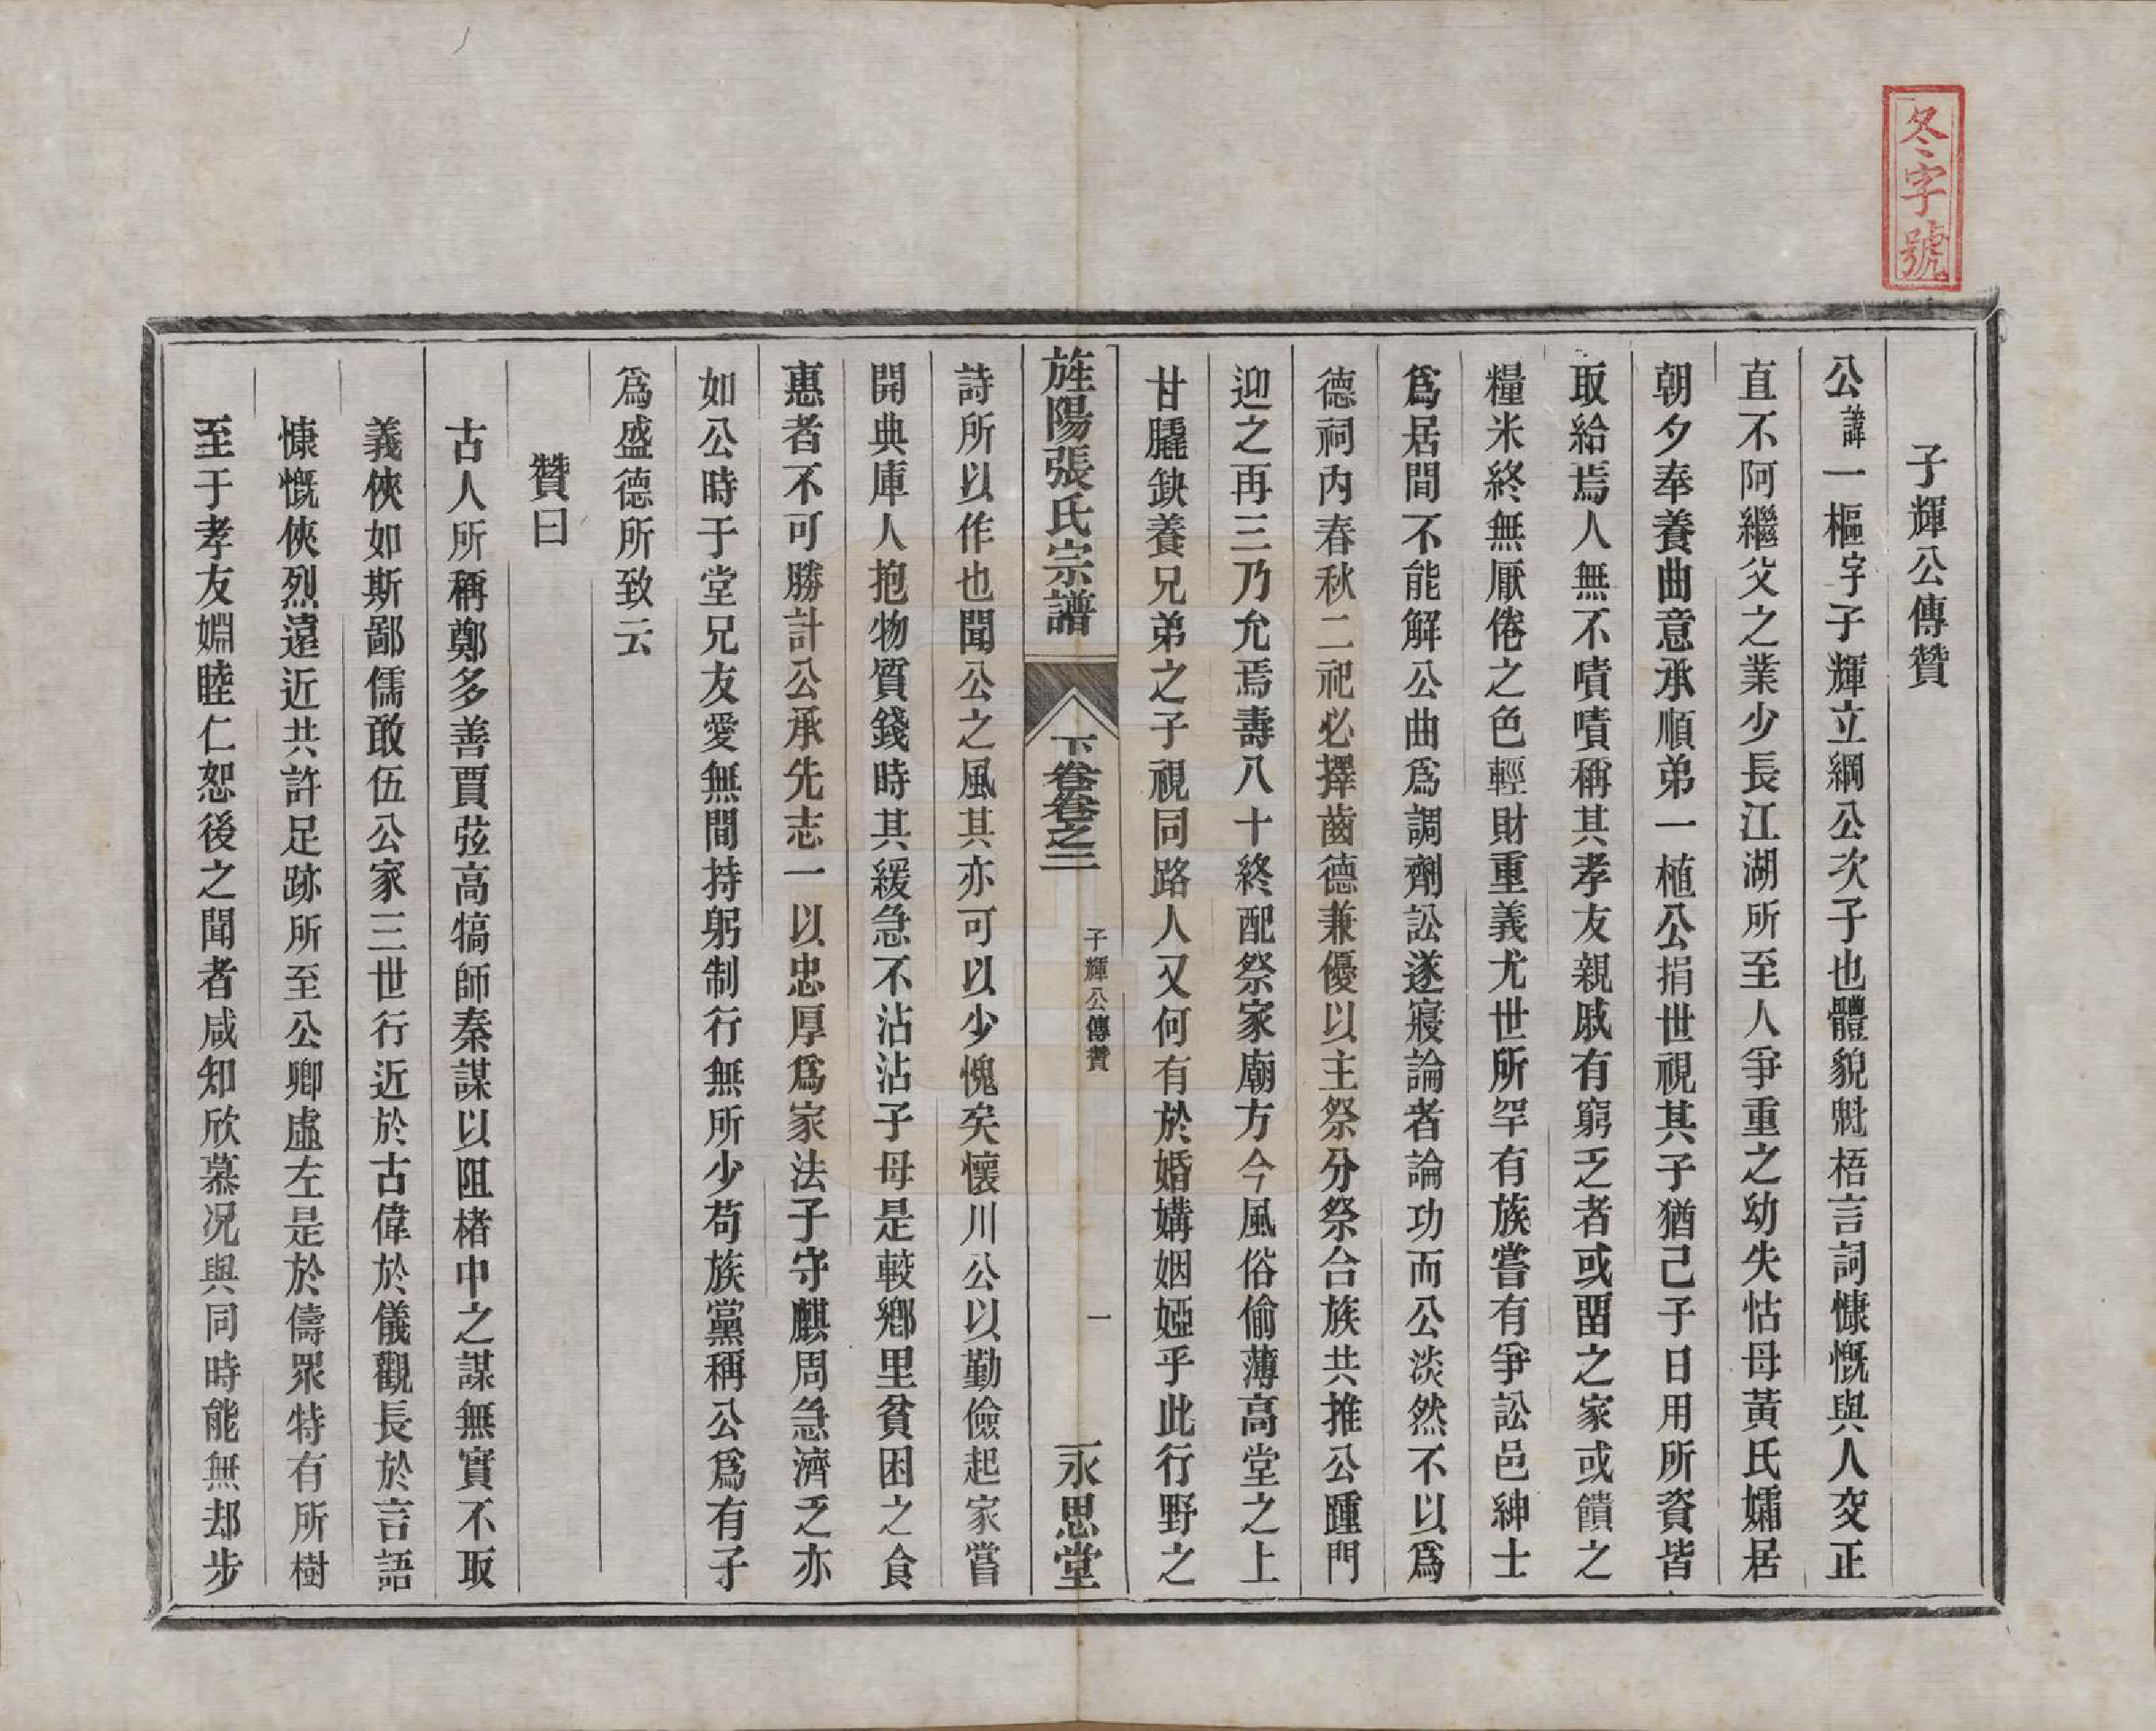 冬字號
子輝公傳贊
公諱一樞字子輝立綱公次子也體貌魁梧言詞慷慨與人交正
直不阿繼父之業少長江湖所至人爭重之幼失怙母黃氏孀居
朝夕奉養曲意承順弟一植公捐世視其子猶己子日用所資皆
取給焉人無不嘖嘖稱其孝友親戚有窮乏者或畱之家或饋之
糧米終無厭倦之色輕財重義尤世所罕有族嘗有爭訟邑紳士
爲居間不能解公曲爲調劑訟遂寢論者論功而公淡然不以爲
德祠內春秋二祀必擇齒德兼優以主祭分祭合族共推公踵門
迎之再三乃允焉壽八十終配祭家廟方今風俗偷薄高堂之上
甘膬缺養兄弟之子視同路人又何有於婚媾姻婭乎此行野之
旌陽張氏宗譜
下卷卷之二
子輝公傳贊
一
永思堂
詩所以作也聞公之風其亦可以少愧矣懷川公以勤儉起家嘗
開典庫人抱物質錢時其緩急不沾沾子母是較鄉里貧困之食
惠者不可勝計公承先志一以忠厚爲家法子守麒周急濟乏亦
如公時于堂兄友愛無間持躬制行無所少苟族黨稱公爲有子
爲盛德所致云
贊曰
古人所稱鄭多善賈弦高犒師秦謀以阻楮中之謀無實不取
義俠如斯鄙儒敢伍公家三世行近於古偉於儀觀長於言語
慷慨俠烈遠近共許足跡所至公卿虛左是於儔眾特有所樹
至于孝友婣睦仁恕後之聞者咸知欣慕况與同時能無却步